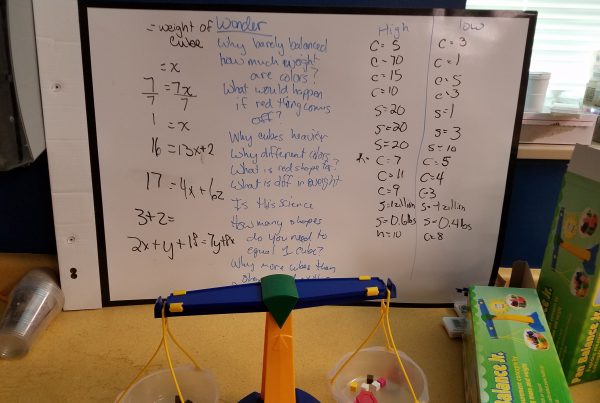 = weight of
cube
= x
7 = 7x
7 7
1 = x
16 = 13x+2
17 = 4x + 6z
3+2=
Wonder
Why barely balanced
how much weight
are colors?
What would happen
if red thing comes
off?
Why cubes heavier
Why different colors
What is red shape for?
What is diff in weight
Is this science
How many shapes
do you need to
equal 1 cube?
Why more cubes than
High
C = 5
C = 70
C = 15
C = 10
S = 20
S = 20
S = 20
C = 7
C = 11
C = 9
S = 0.6lbs
n = 10
low
C = 3
C = 1
C = 5
C = 3
S = 1
S = 3
S = 10
C = 5
C = 4
C = 3
S = 0.4lbs
C = 8
Pan Balance Jr.
Pan Balance Jr.